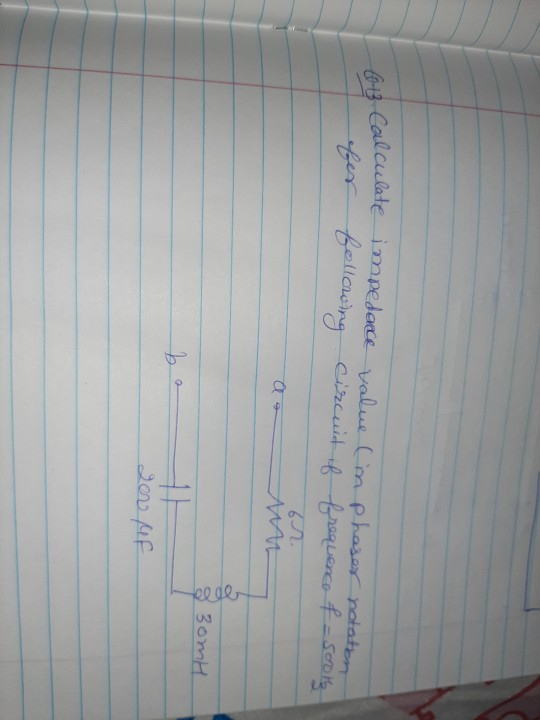 Q.13 Calculate impedance value (in phasor notation
for following circuit if frequence f = 500Hz
a
6Ω.
30mH
b
200 μF